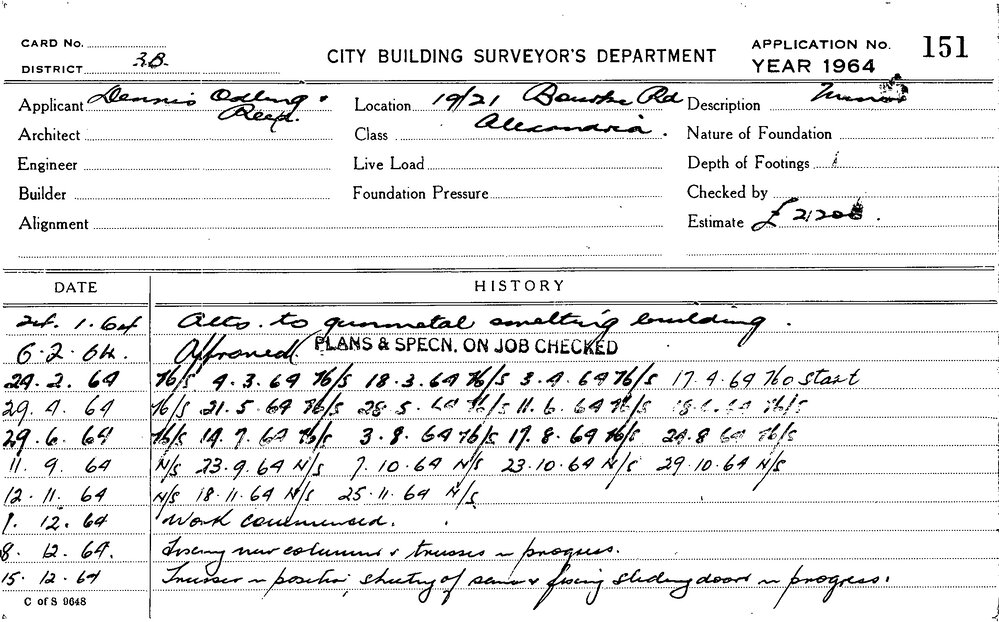 CARD No.
CITY BUILDING SURVEYOR'S DEPARTMENT
APPLICATION No. 151
DISTRICT 3B.
YEAR 1964
Applicant Dennis Odling & Reed.
Location 19/21 Bourke Rd Alexandria.
Description
Architect
Class
Nature of Foundation
Engineer
Live Load
Depth of Footings
Builder
Foundation Pressure
Checked by
Alignment
Estimate £ 2,200.
DATE HISTORY
24. 1. 64 Alts. to gunmetal smelting building.
6. 2. 64. Approved. PLANS & SPECN. ON JOB CHECKED
24. 2. 64 N/S 4.3.64 N/S 18.3.64 N/S 3.4.64 N/S 17.4.64 No start
29. 4. 64 N/S 21.5.64 N/S 28.5.64 N/S 11.6.64 N/S 18.6.64 N/S
29. 6. 64 N/S 14.7.64 N/S 3.8.64 N/S 17.8.64 N/S 24.8.64 N/S
11. 9. 64 N/S 23.9.64 N/S 7.10.64 N/S 23.10.64 N/S 29.10.64 N/S
12. 11. 64 N/S 18.11.64 N/S 25.11.64 N/S
1. 12. 64 Work commenced.
8. 12. 64. Fixing new columns & trusses in progress.
15. 12. 64 Trusses in position, sheeting of same & fixing sliding doors in progress.
C of S 9648